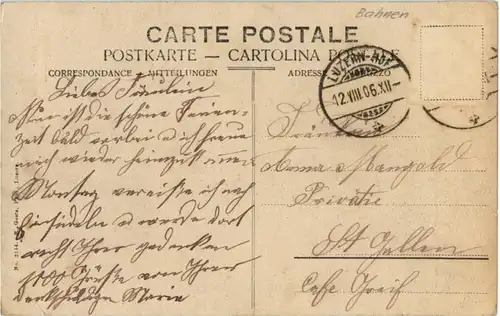 Bahnen
CARTE POSTALE
POSTKARTE — CARTOLINA POSTALE
CORRESPONDANCE - MITTEILUNGEN
ADRESSE
LUZERN-HOF
12.VIII.06.XII-
Liebes Fräulein
Nun ist die schöne Ferien-
zeit bald vorbei & ich freue
mich wieder
Montag verreiste ich nach
Einsiedeln & werde dort
recht Ihrer gedenken
1000 Grüsse von Ihrer
Marie
Fräulein
Anna Mangold
Private
St Gallen
Cafe Greif